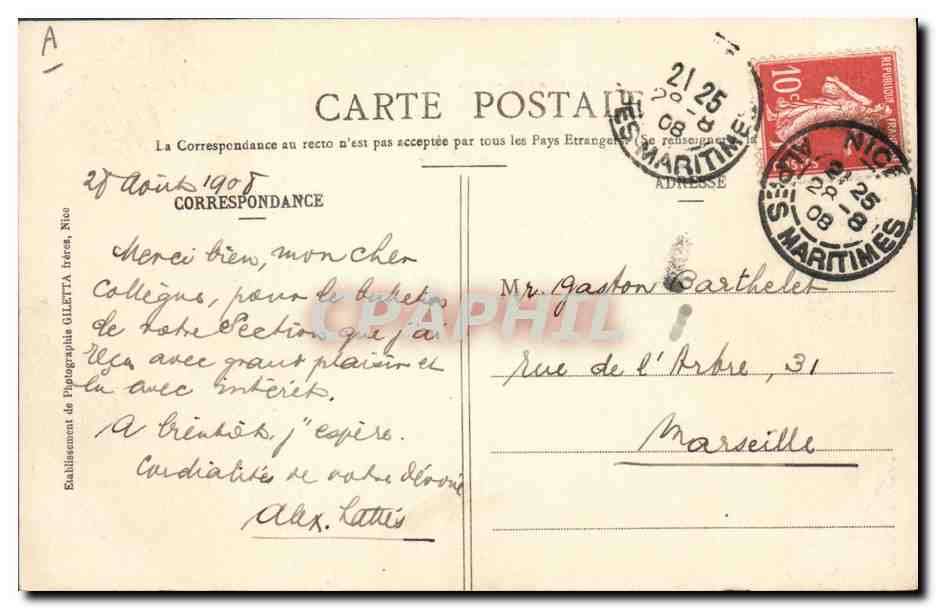 A
CARTE POSTALE
La Correspondance au recto n'est pas acceptée par tous les Pays Etrangers (Se renseigner à la
28 Août 1908
CORRESPONDANCE
ADRESSE
Merci bien, mon cher
collègue, pour le bulletin
de votre Section que j'ai
reçu avec grant plaisir et
lu avec intérêt.
A bientôt, j'espère.
Cordialités de votre dévoué
Alex. Lattès
Mr. Gaston Barthelet
rue de l'Arbre, 31
Marseille
Etablissement de Photographie GILETTA frères, Nice
REPUBLIQUE FRANÇAISE
10c
POSTES
21 25
28 -8
08
PES MARITIMES
NICE
21 25
28 -8
08
ALPES MARITIMES
CPAPHIL